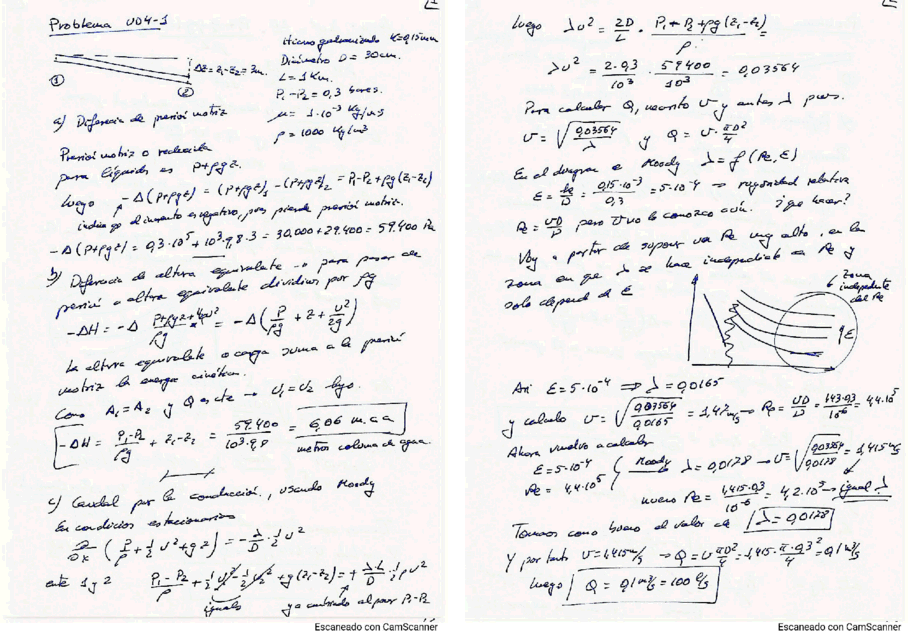 Problema UD4-1
Hierro galvanizado K=0,15mm
Diámetro D = 30cm.
Δz = z₁-z₂ = 3m.
L = 1 Km.
① ②
P₁-P₂ = 0,3 bares.
μ = 1·10⁻³ Kg/m·s
ρ = 1000 Kg/m³
a) Diferencia de presión motriz
Presión motriz o reducida
para líquidos es P+ρgz.
luego -Δ(P+ρgz) = (P+ρgz)₁ - (P+ρgz)₂ = P₁-P₂+ρg(z₁-z₂)
indica que el incremento es negativo, pues pierde presión motriz.
-Δ(P+ρgz) = 0,3·10⁵ + 10³·9,8·3 = 30.000+29.400 = 59.400 Pa
b) Diferencia de altura equivalente → para pasar de
presión a altura equivalente dividimos por ρg
-ΔH = -Δ (P+ρgz+½ρv²)/ρg = -Δ(P/ρg + z + v²/2g)
La altura equivalente o carga suma a la presión
motriz la energía cinética.
Como A₁=A₂ y Q es cte → v₁=v₂ luego.
-ΔH = (P₁-P₂)/ρg + z₁-z₂ = 59.400/10³·9,8 = 6,06 m.c.a
metros columna de agua.
c) Caudal por la conducción, usando Moody
En condiciones estacionarias
∂/∂x (P/ρ + ½v² + gz) = -λ/D · ½v²
entre 1 y 2 (P₁-P₂)/ρ + ½v₁² - ½v₂² + g(z₁-z₂) = + λL/D · ½ρv²
iguales ya cambiado al pasar P₁-P₂
Escaneado con CamScanner
luego λv² = 2D/L · (P₁-P₂+ρg(z₁-z₂))/ρ =
λv² = 2·0,3/10³ · 59.400/10³ = 0,03564
Para calcular Q, necesito v y antes λ pues.
v = √(0,03564/λ) y Q = v·πD²/4
En el diagrama de Moody λ = f(Re, ε)
ε = k/D = 0,15·10⁻³/0,3 = 5·10⁻⁴ → rugosidad relativa
Re = vD/ν pero v no lo conozco aún. ¿Qué hacer?
Voy a partir de suponer un Re muy alto, en la
zona en que λ se hace independiente de Re y
solo depende de ε
Zona
independiente
del Re
ε
Así ε = 5·10⁻⁴ ⇒ λ = 0,0165
y calculo v = √(0,03564/0,0165) = 1,47 m/s → Re = vD/ν = 1,47·0,3/10⁻⁶ = 4,4·10⁵
Ahora vuelvo a calcular
ε = 5·10⁻⁴
Re = 4,4·10⁵
Moody → λ = 0,0178 → v = √(0,03564/0,0178) = 1,415 m/s
nuevo Re = 1,415·0,3/10⁻⁶ = 4,2·10⁵ → igual λ
Tomamos como bueno el valor de λ = 0,0178
Y por tanto v = 1,415 m/s → Q = v πD²/4 = 1,415·π·0,3²/4 = 0,1 m³/s
luego Q = 0,1 m³/s = 100 l/s
Escaneado con CamScanner